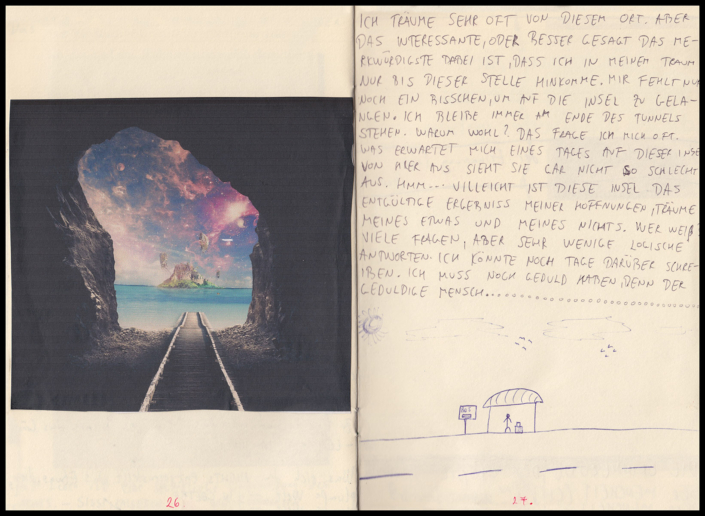 ICH TRÄUME SEHR OFT VON DIESEM ORT. ABER
DAS INTERESSANTE, ODER BESSER GESAGT DAS ME-
RKWÜRDIGSTE DABEI IST, DASS ICH IN MEINEM TRAUM
NUR BIS DIESER STELLE HINKOMME. MIR FEHLT NUR
NOCH EIN BISSCHEN, UM AUF DIE INSEL ZU GELA-
NGEN. ICH BLEIBE IMMER AM ENDE DES TUNNELS
STEHEN. WARUM WOHL? DAS FRAGE ICH MICH OFT.
WAS ERWARTET MICH EINES TAGES AUF DIESER INSEL
VON HIER AUS SIEHT SIE GAR NICHT SO SCHLECHT
AUS. HMM... VILLEICHT IST DIESE INSEL DAS
ENTGÜLTIGE ERGEBNISS MEINER HOFFNUNGEN, TRÄUME
MEINES ETWAS UND MEINES NICHTS. WER WEIß
VIELE FRAGEN, ABER SEHR WENIGE LOGISCHE
ANTWORTEN. ICH KÖNNTE NOCH TAGE DARÜBER SCHRE-
IBEN. ICH MUSS NOCH GEDULD HABEN, DENN DER
GEDULDIGE MENSCH...................
26
27.